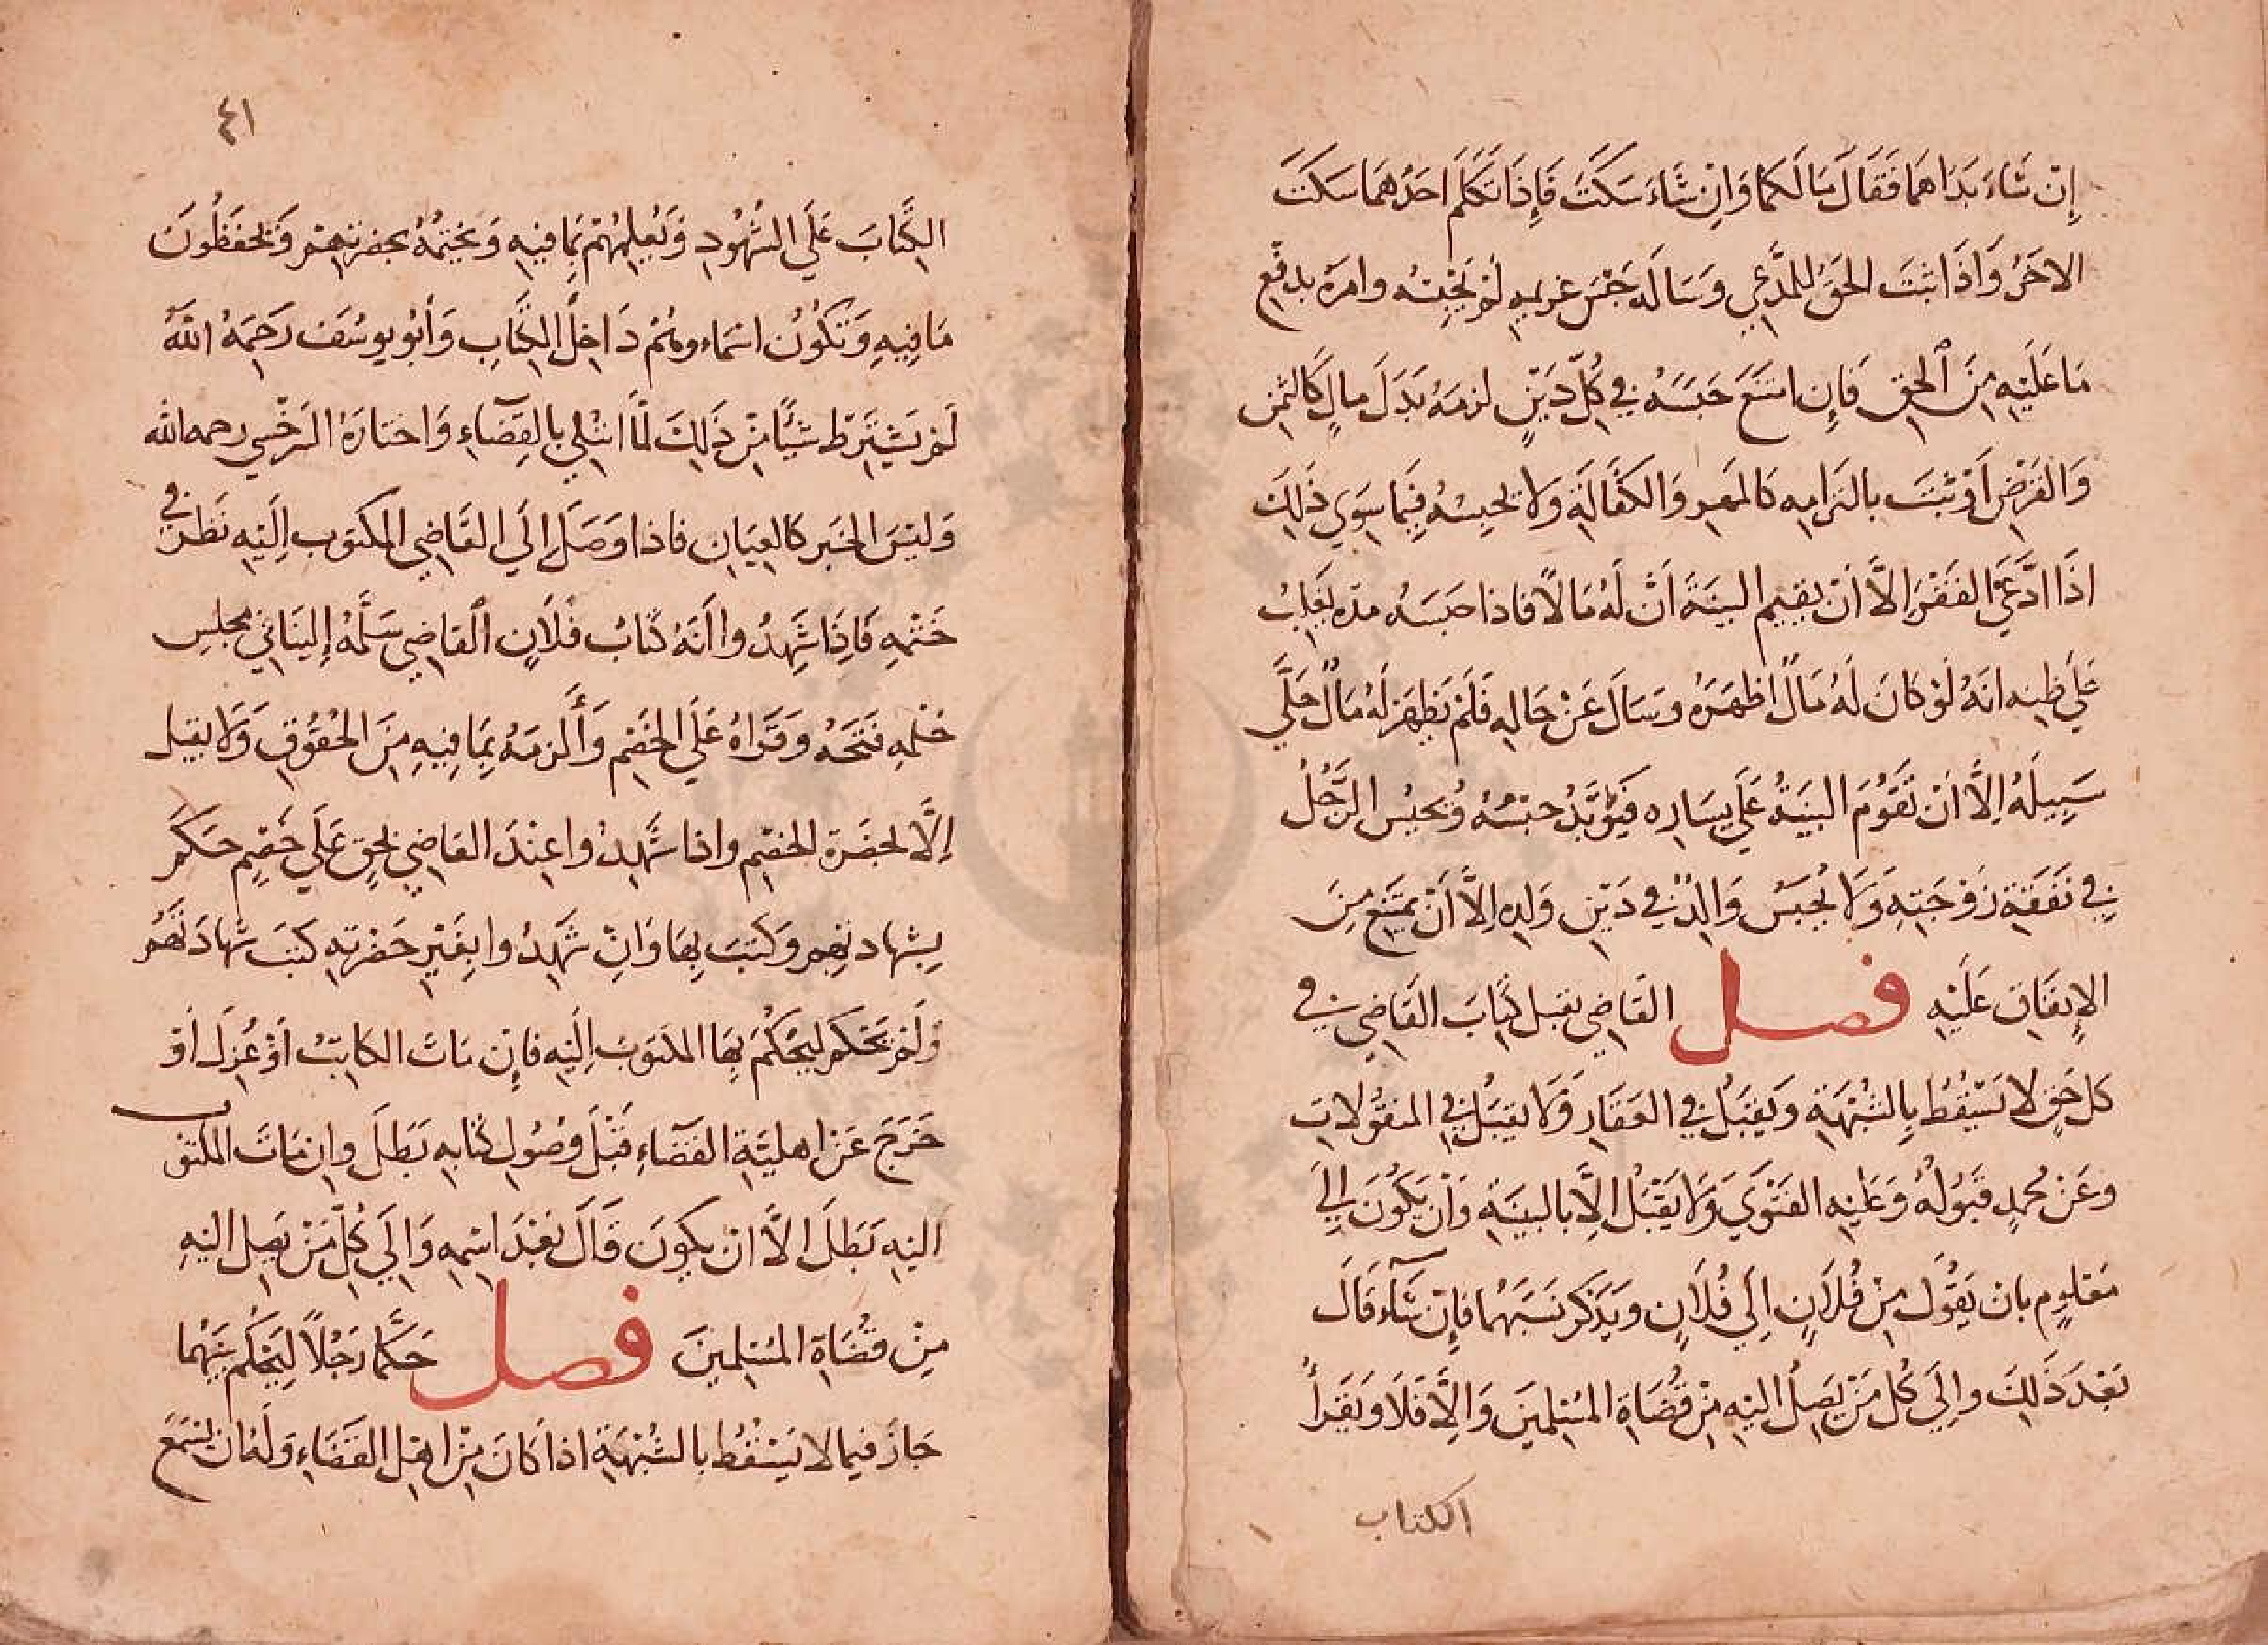 إِنْ شَاءَ بَدَاهمَا فَقَالَ مَا لَكمَا وَاِنْ شَاءَ سَكَتَ فَإِذَا تَكَلَّمَ احَدُهمَا سَكتَ
الاخَرُ وَاذَا ثبَتَ الحَقُّ للمُدَّعِي وَسَالَهُ حَبْسَ غريمهِ لَمْ يَحْبِسْهُ وامَرَهُ بدفْعِ
مَا عَلَيْهِ مِنَ الحق فَإن امتَنَعَ حَبَسَهُ فِي كُلّ دَيْنٍ لزمَهُ بَدَلَ مالٍ كَالثمنِ
وَالقَرْض اَوْ ثبَتَ بالتزَامِه كَالمَهرِ وَالكفَالَةِ وَلا يحبِسُهُ فِيمَا سِوَي ذَلِكَ
اذَا ادَّعَيَ الفَقْرَ اِلاَّ اَنْ يقيم البينَةَ اَنَّ لَهُ مَالاً فاذا حبَسَهُ مدّه يَغلِبُ
عَلَي ظنِه انَهُ لَوْ كانَ لَهُ مَالٌ اَظهَرَهُ وسَالَ عَنْ حَالِهِ فَلَمْ يَظهَرْ لهُ مَالٌ خلَّي
سَبِيلَهُ اِلاَّ اَنْ تَقُوْمَ البَينَةُ عَلَي يسَارِه فَيُؤبَّدُ حبْسُهُ وَيُحبَسُ الرَّجُلُ
فِي نَفقَةِ زَوْجَتِهِ وَلَا يُحبَسُ وَالِدٌ فِي دَيْنِ وَلدِهِ اِلاَّ اَنْ يمتَنِعَ مِنَ
الإِنفَاقِ عَلَيْهِ فصل القَاضِي يقبل كتَابَ القَاضِي فِي
كل حَقٍ لا يَسْقُطُ بِالشُبْهَةِ وَيُقبَلُ فِي العَقَارِ وَلَا يقبَلُ فِي المنقُولاتِ
وعَنْ مُحمدٍ قبُولُهُ وَعَليْهِ الفَتْوَي وَلَا يَقْبَلُ اِلاَّ بالبينَةِ وَاَنْ يكُونَ اِلَي
مَعْلومٍ بان يَقُولَ مِنْ فُلَانٍ اِلَي فُلَانٍ ويَذكرَ نسَبَهُمَا فإِنْ شَآء قَالَ
بَعْدَ ذَلِكَ وإِلَي كُل مَنْ يَصِلُ اليْهِ مِنْ قُضَاةِ المسْلِمينَ وَاِلاَّ فَلَا وَيَقرأُ
الكتاب
٤١
الكِتَابَ عَلَي الشهُودِ وَيُعْلِمهُمْ بِمَا فيهِ وَيَختِمُهُ بحضرتِهِمْ وَيحفَظُونَ
مَا فِيهِ وَتكُوْنُ اسْمَاءوهُمْ دَاخِلَ الكِتَابِ وَأبُو يوسُفَ رَحِمَهُ اللَّه
لَمْ يَشتَرِطْ شيْئًا مِنْ ذَلِكَ لمَّا ابْتُلِيَ بالقضَاءِ وَاختَارَهُ السَرَخْسِي رحمه الله
وَليْسَ الخبَر كَالعِيَانِ فاذا وَصَلَ اِلَي القَاضِي المكتوب اِلَيْهِ نَظَرَ في
خَتْمِهِ فَاِذَا شَهِدُوا اَنَهُ كتَابُ فُلَانٍ القاضِي سَلَّمَهُ إلينَا فِي مجلِس
حُكْمِهِ فَتَحَهُ وَقَرَاهُ عَلَي الخَصْمِ وَأَلزمَهُ بِمَا فِيهِ مِنَ الحُقُوقِ وَلَا يقبل
اِلَّا بحضْرَةِ الخَصْمِ واذا شَهِدُوا عِنْدَ القاضِي بحَقٍ عَلَي خَصْمٍ حَكَمَ
بِشهادتهِم وَكتبَ بِهَا وَانْ شَهِدُوا بِغَيْرِ حَضْرَتِهِ كتبَ شهادَتَهُم
وَلَمْ يَحْكم ليَحْكُمَ بِهَا المَكتوبُ اِلَيْهِ فإِنْ مَاتَ الكاتِبُ أَوْ عُزِلَ أَوْ
خَرَجَ عَنْ اهليَّةِ القَضَآءِ قَبْلَ وصُولِ كتابِهِ بَطَلَ وان مَاتَ المكتوب
اليْهِ بَطَلَ اِلاَّ انْ يكونَ قَالَ بَعْدَ اسْمِهِ وَاِلَي كُلِّ مَنْ يَصِل اليْهِ
مِنْ قُضَاةِ المسْلِمِينَ فصل حَكَّمَا رَجُلاً لِيَحْكُم بَيْنهُمَا
جَازَ فيما لا يَسْقُطُ بالشُبْهَةِ اذا كَانَ مِنْ اهْلِ القَضَاءِ وَلَهُ ان يسْمَعَ